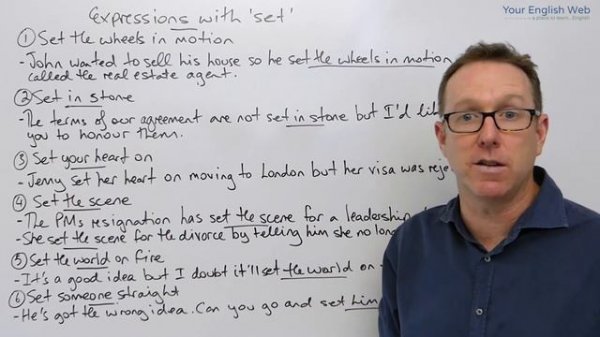 Your English Web
a place to learn English
Expressions with 'set'
① Set the wheels in motion
- John wanted to sell his house so he set the wheels in motion
called the real estate agent.
② Set in stone
- The terms of our agreement are not set in stone but I'd
you to honour them.
③ Set your heart on
- Jenny set her heart on moving to London but her visa was
④ Set the scene
- The PMs resignation has set the scene for a leadership
- She set the scene for the divorce by telling him she no
⑤ Set the world on fire
- It's a good idea but I doubt it'll set the world on
⑥ Set someone straight
- He's got the wrong idea. Can you go and set him